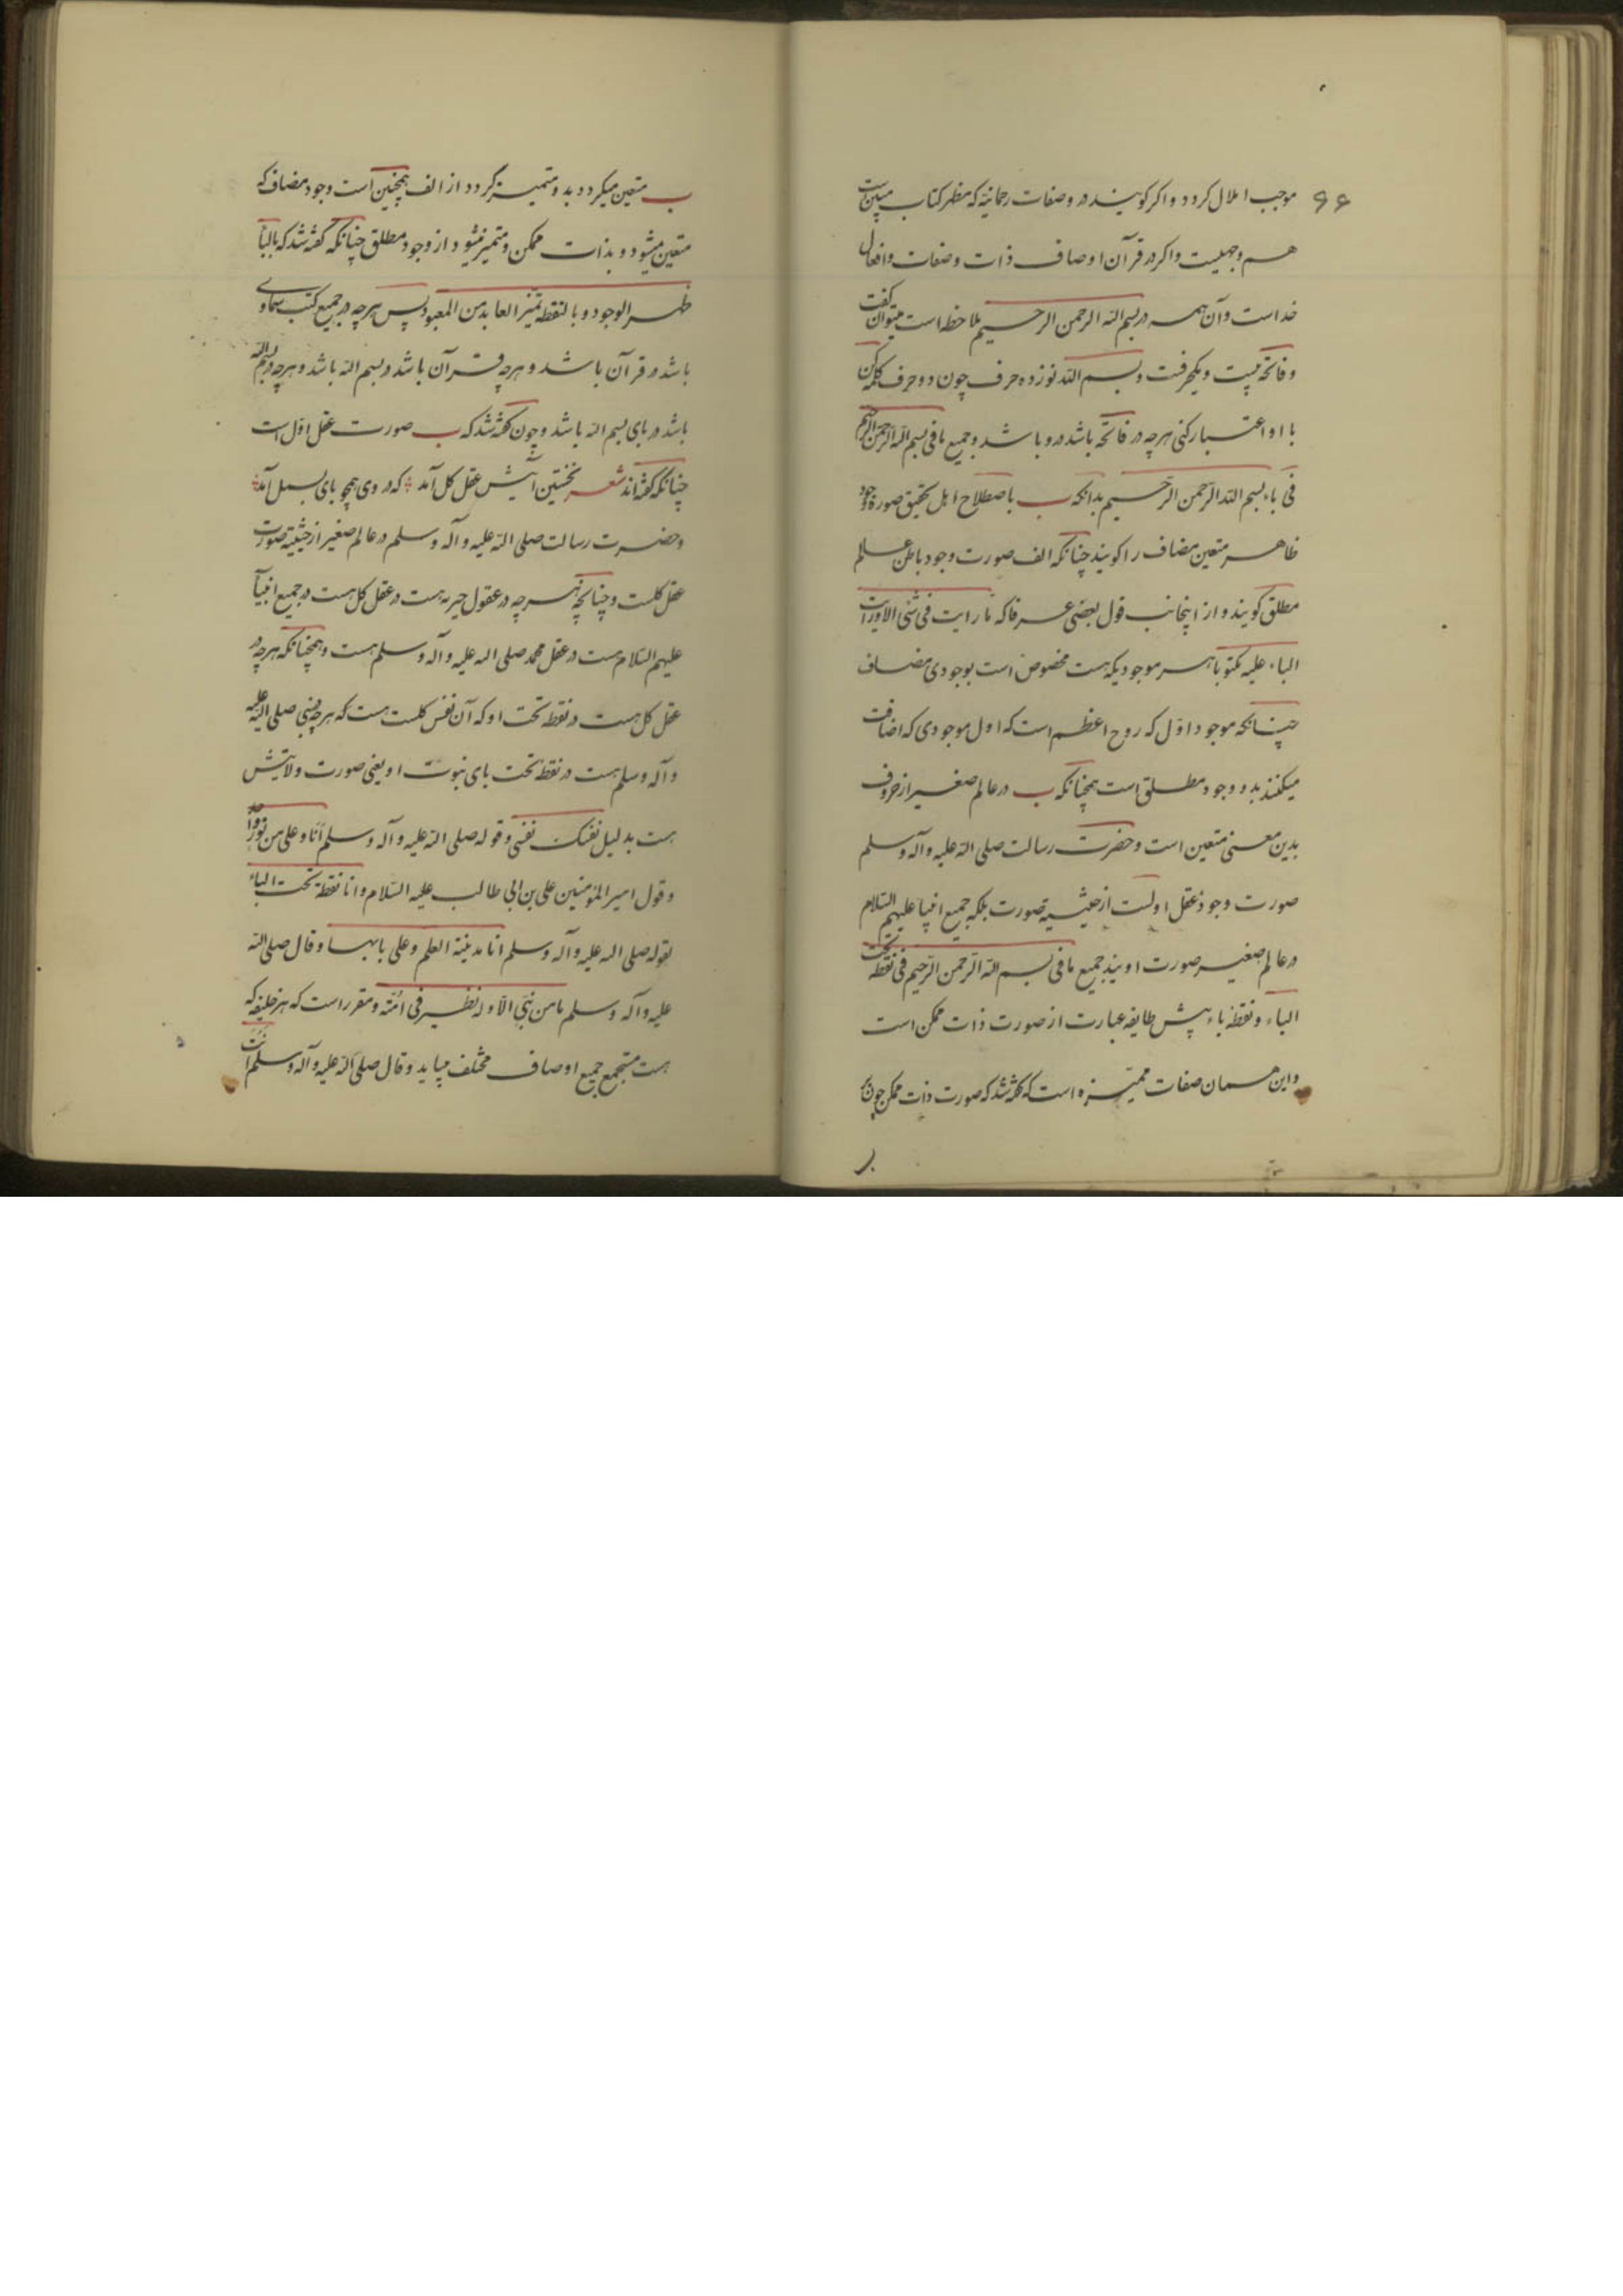 ۶۶
موجب املال کردد و اکر کویند در وصفات رحمانیّه که مظهر کتاب مبین است
هم وجهیست و اکر در قرآن اوصاف ذات و صفات و افعال
خداست و آن همه در بسم الله الرحمن الرحیم ملاحظه است میتوان کفت
و فاتحه بیست و یکحرفست و بسم الله نوزده حرف چون دو حرف کلمه کن
با او اعتبار کنی هرچه در فاتحه باشد درو باشد و جمیع ما فی بسم الله الرحمن الرحیم
فی باء بسم الله الرّحمن الرّحیم بدانکه ب باصطلاح اهل تحقیق صورة وجود
ظاهر متعین مضاف را کویند چنانکه الف صورت وجود باطن عالم
مطلق کویند و از اینجانب قول بعضی عرفا که ما رایت فی شئ الا ورایت
الباء علیه مکتوبا هر موجودیکه هست مخصوص است بوجودی مضاف
چنانکه موجود اوّل که روح اعظم است که اول موجودی که اضافت
میکنند بدو وجود مطلق است همچنانکه ب در عالم صغیر از حروف
بدین معنی متعین است و حضرت رسالت صلی الله علیه و آله و سلم
صورت وجود عقل اولست از حیثیه صورت بلکه جمیع انبیا علیهم السّلام
در عالم صغیر صورت اویند جمیع ما فی بسم الله الرّحمن الرّحیم فی نقطه تحت
الباء و نقطهٔ باء پیش طایفه عبارت از صورت ذات ممکن است
و این همان صفات ممیّزه است که کفته شد که صورت ذات ممکن چون که
ب متعین میکردد بدو متمیز کردد از الف همچنین است وجود مضاف که
متعین میشود و بذات ممکن و متمیز میشود از وجود مطلق چنانکه کفته شد که بالبا
ظهر الوجود و بالنقطه تمیّز العابد من المعبود پس هرچه در جمیع کتب سماوی
باشد در قرآن باشد و هرچه در قرآن باشد در بسم الله باشد و هرچه در بسم الله
باشد در بای بسم الله باشد و چون کفته شد که ب صورت عقل اوّل است
چنانکه کفته‌اند شعر نخستین آیتش عقل کل آمد که در وی همچو بای بسمل آمد
و حضرت رسالت صلی الله علیه و آله و سلم در عالم صغیر از حیثیته صورت
عقل کلست و چنانچه هرچه در عقول جزیه هست در عقل کل هست در جمیع انبیآ
علیهم السّلام هست در عقل محمد صلی الله علیه و آله و سلم هست و همچنانکه هرچه در
عقل کل هست در نقطه تحت او که آن نفس کلست هست که هرچه بنبی صلی الله علیه
و آله و سلم هست در نقطه تحت بای نبوت او یعنی صورت ولایتش
هست بدلیل نفسک نفسی و قوله صلی الله علیه و آله و سلم أنا و علی من نور واحد
و قول امیر المؤمنین علی بن ابی طالب علیه السّلام و انا نقطة تحت الباء
لقوله صلی الله علیه و آله و سلم انا مدینة العلم و علی بابها و قال صلی الله
علیه و آله و سلم ما من نبیّ الّا و له نظیر فی امّته و مقرر است که هر خلیفه که
هست مستجمع جمیع اوصاف مختلف میباید و قال صلی الله علیه و آله و سلم انت